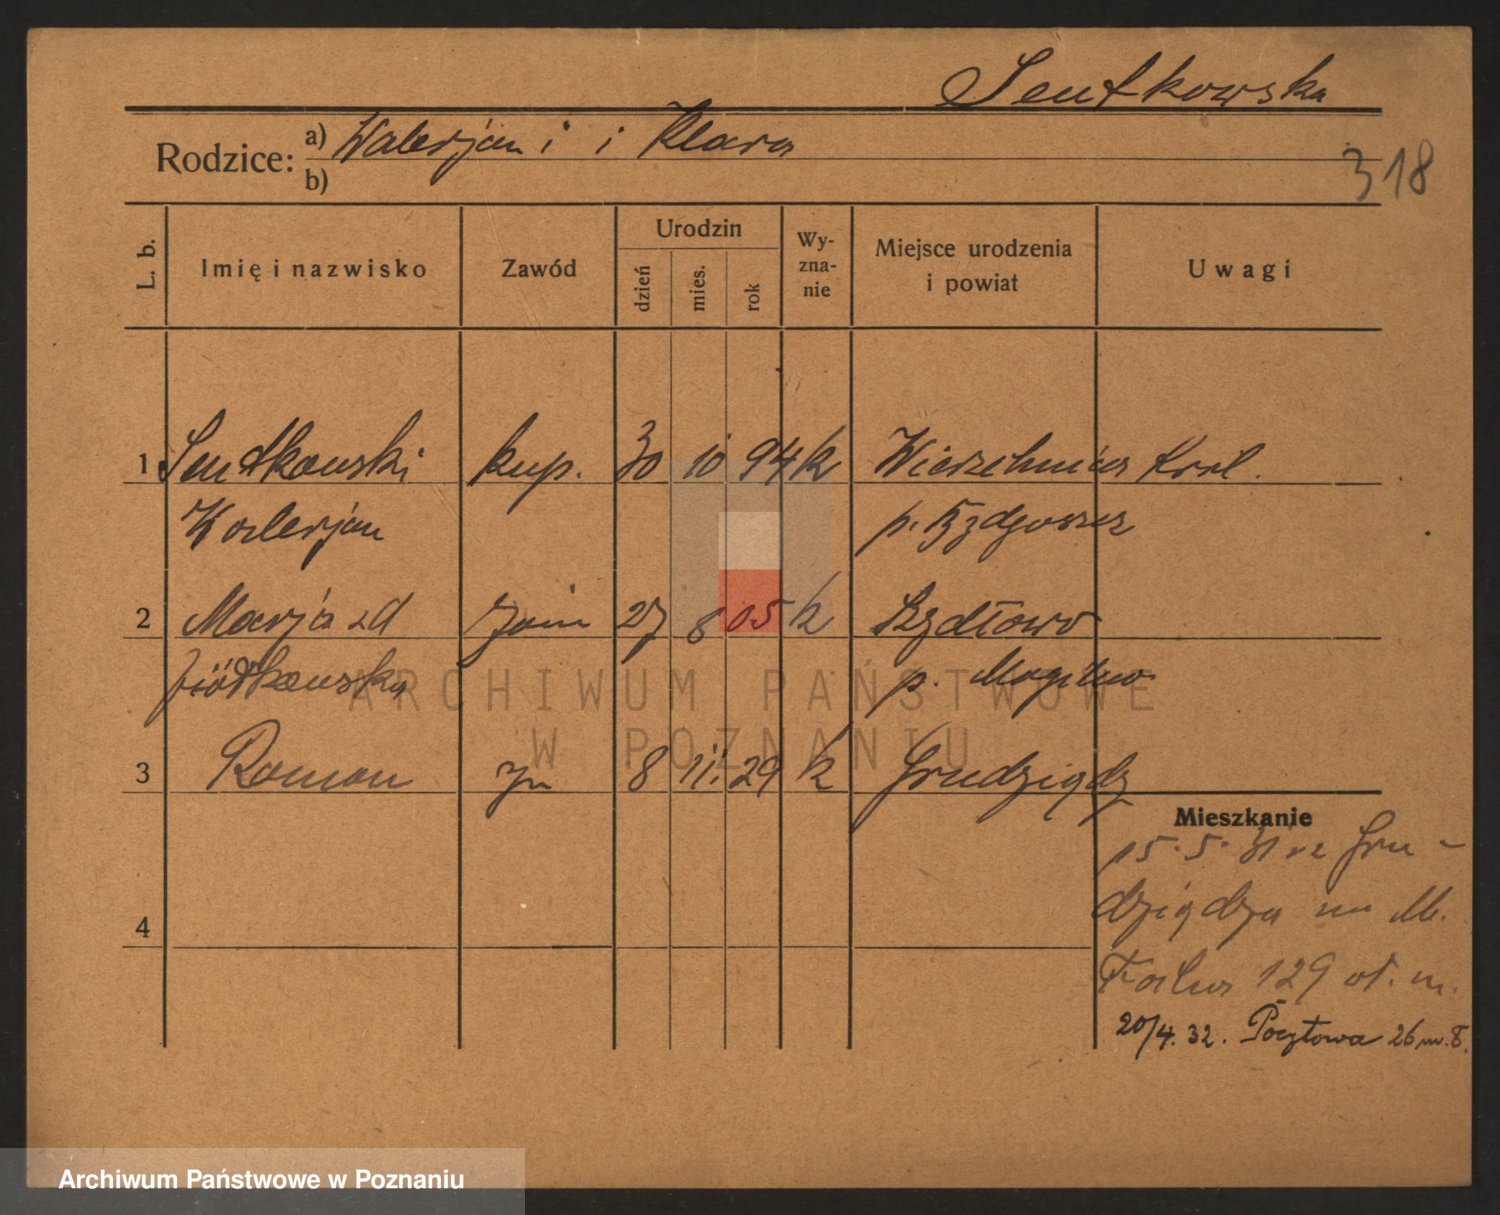 Sentkowska
Rodzice: a) Walerjan i i Klara
b)
318
L. b. Imię i nazwisko Zawód Urodzin dzień mies. rok Wy-zna-nie Miejsce urodzenia i powiat Uwagi
1 Sentkowski kup. 30 10 94 k Wierzchucin król.
Walerjan p. Bydgoszcz
2 Marja zd żona 27 8 05 k
Ziółkowska p. Mogilno
3 Roman syn 8 11. 29 k Grudziądz
Mieszkanie
15. 5. 31 rz Gru-
dziądza na M.
Focha 129
4
20/4. 32. Pocztowa 26 m. 8.
ARCHIWUM PAŃSTWOWE
W POZNANIU
Archiwum Państwowe w Poznaniu